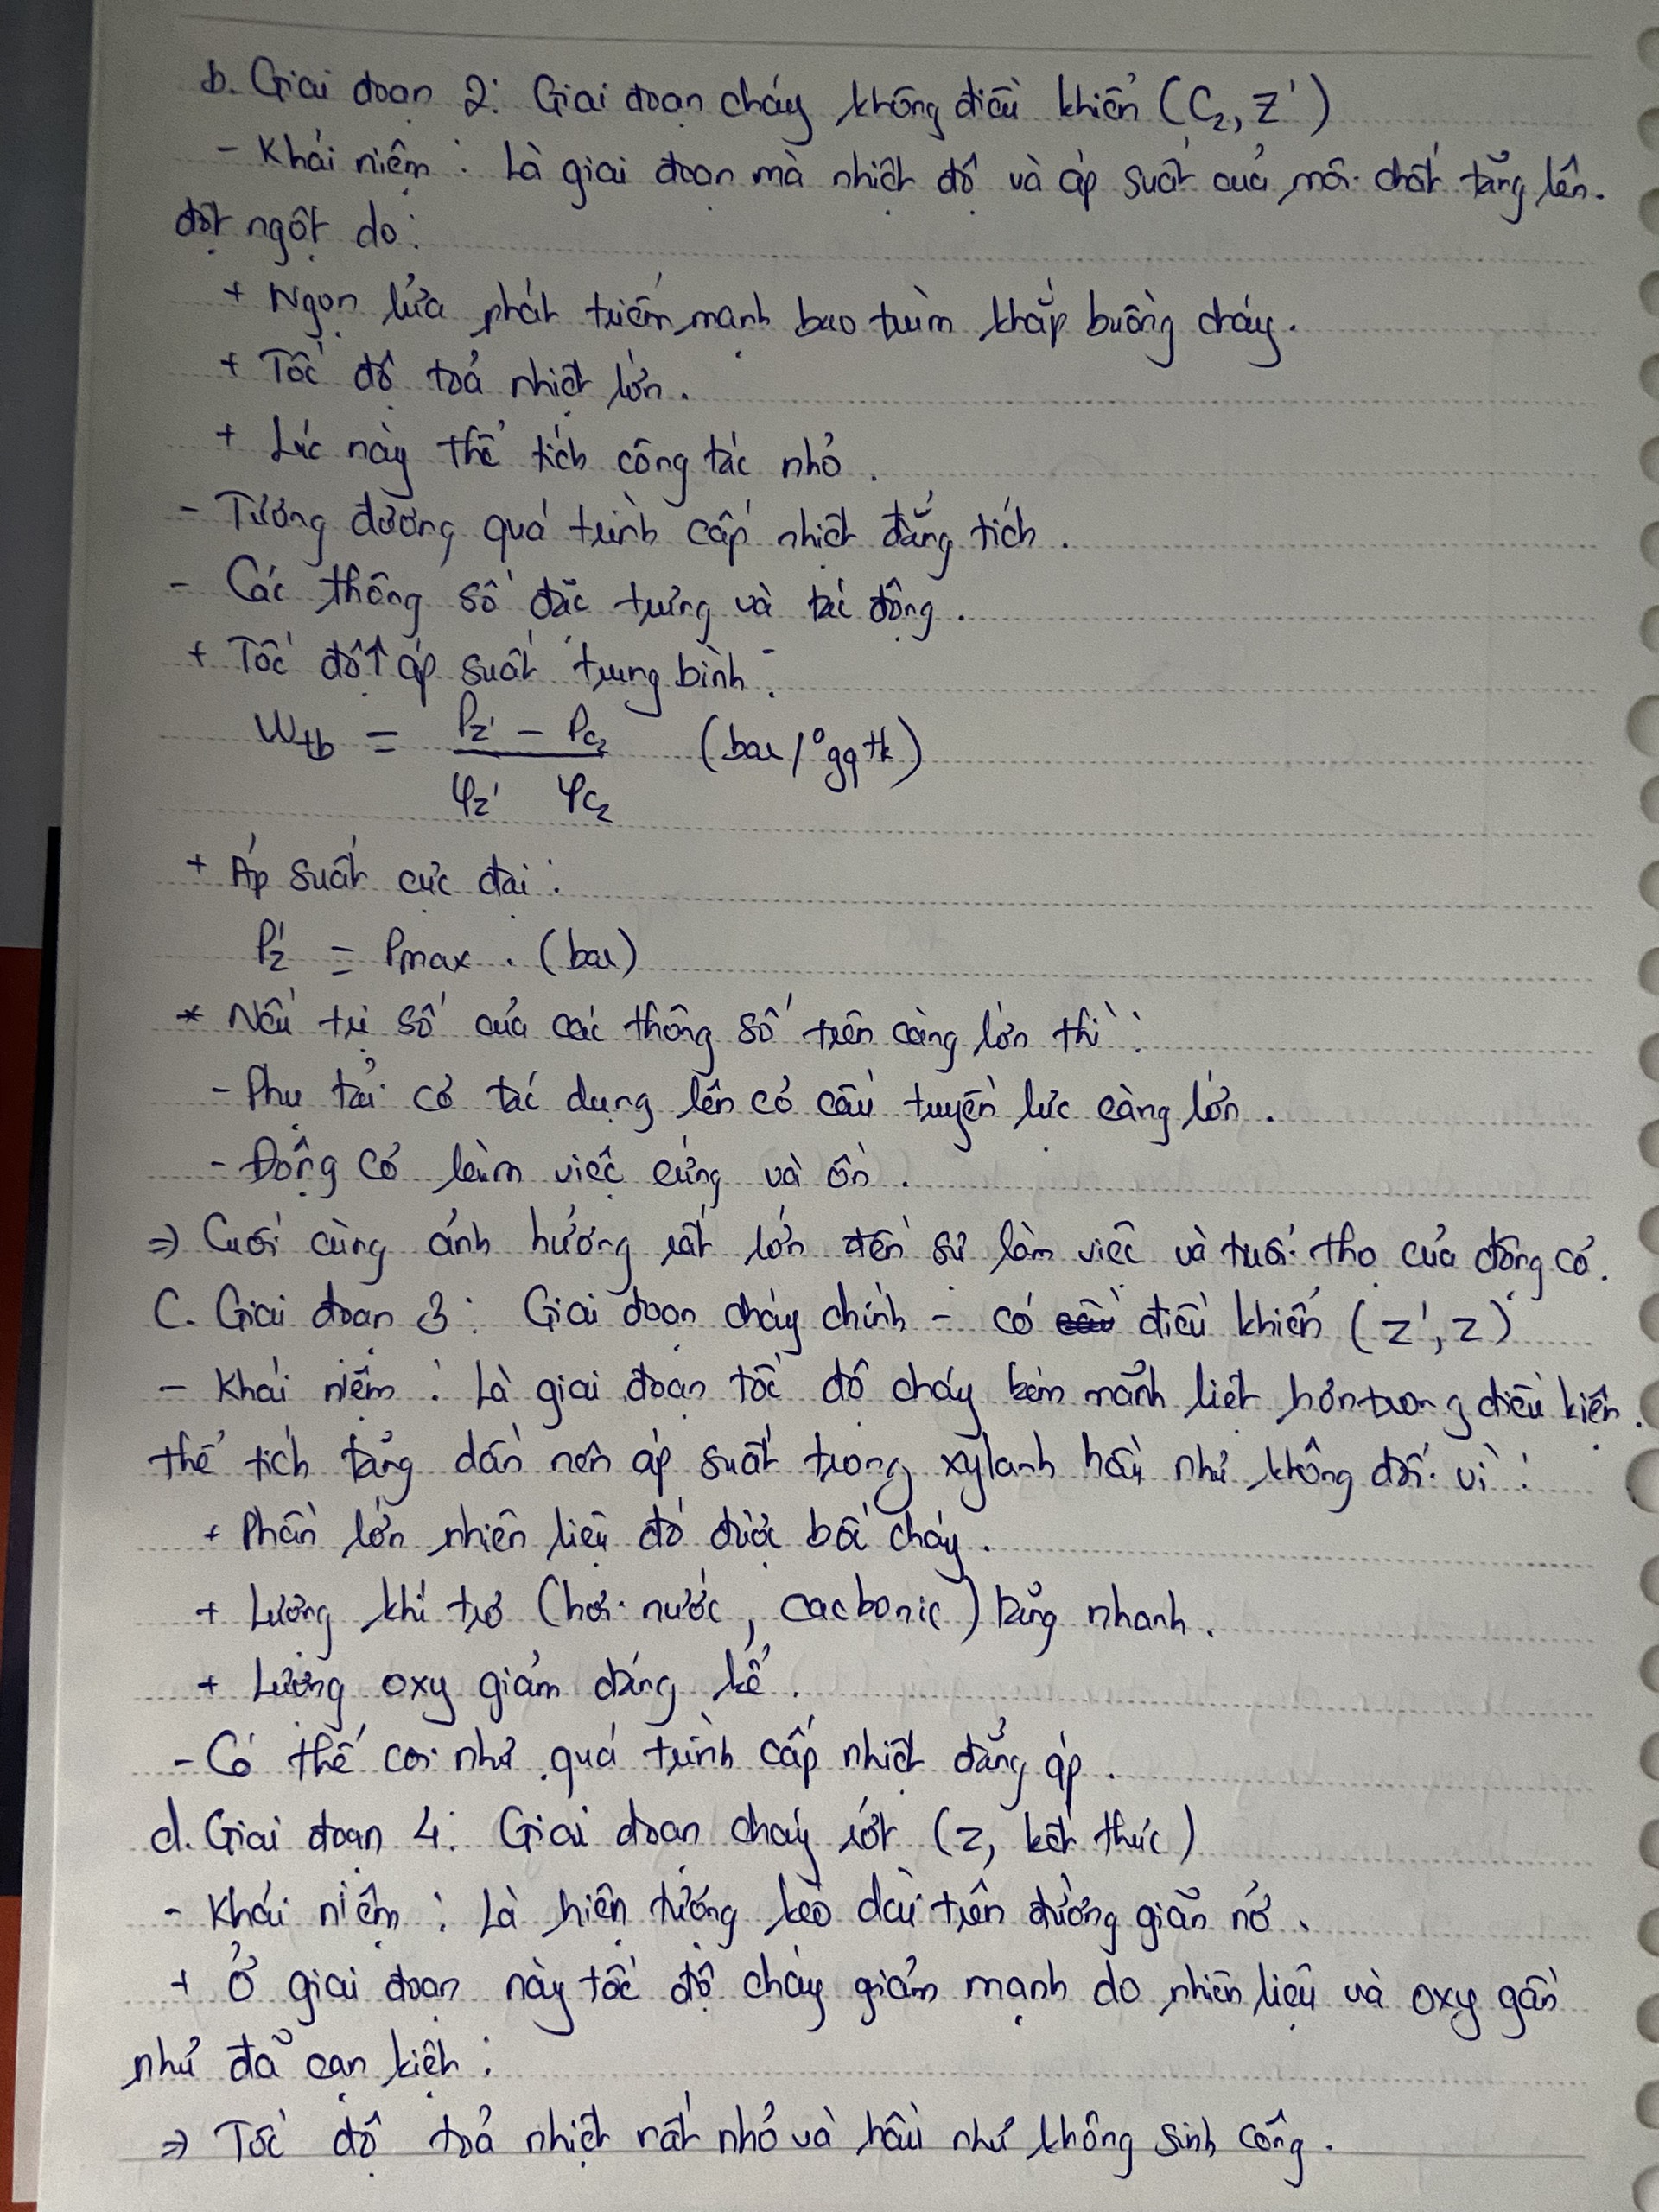 b. Giai đoạn 2: Giai đoạn cháy không điều khiển (C₂, Z')
- Khái niệm : Là giai đoạn mà nhiệt độ và áp suất của môi chất tăng lên.
đột ngột do:
+ Ngọn lửa phát triển mạnh bao trùm khắp buồng cháy.
+ Tốc độ toả nhiệt lớn.
+ Lúc này thể tích công tác nhỏ.
- Tương đương quá trình cấp nhiệt đẳng tích.
- Các thông số đặc trưng và tác động.
+ Tốc độ↑ áp suất trung bình:
Wtb = (Pz' - Pc₂) / (φz' φc₂) (bar/°gqtk)
+ Áp suất cực đại:
Pz' = Pmax . (bar)
* Nếu trị số của các thông số trên càng lớn thì :
- Phụ tải cơ tác dụng lên cơ cấu truyền lực càng lớn.
- Động cơ làm việc cứng và ồn.
⇒ Cuối cùng ảnh hưởng rất lớn đến sự làm việc và tuổi thọ của động cơ.
C. Giai đoạn 3: Giai đoạn cháy chính - có điều khiển (z', z)
- Khái niệm : Là giai đoạn tốc độ cháy kém mãnh liệt hơn trong điều kiện.
thể tích tăng dần nên áp suất trong xylanh hầu như không đổi vì :
+ Phần lớn nhiên liệu đó được bốc cháy.
+ Lượng khí trơ (hơi nước, cacbonic) tăng nhanh.
+ Lượng oxy giảm đáng kể.
- Có thể coi như quá trình cấp nhiệt đẳng áp.
d. Giai đoạn 4: Giai đoạn cháy rớt (z, kết thúc)
- Khái niệm : Là hiện tượng kéo dài trên đường giãn nở.
+ Ở giai đoạn này tốc độ cháy giảm mạnh do nhiên liệu và oxy gần
như đã cạn kiệt:
⇒ Tốc độ toả nhiệt rất nhỏ và hầu như không sinh công.